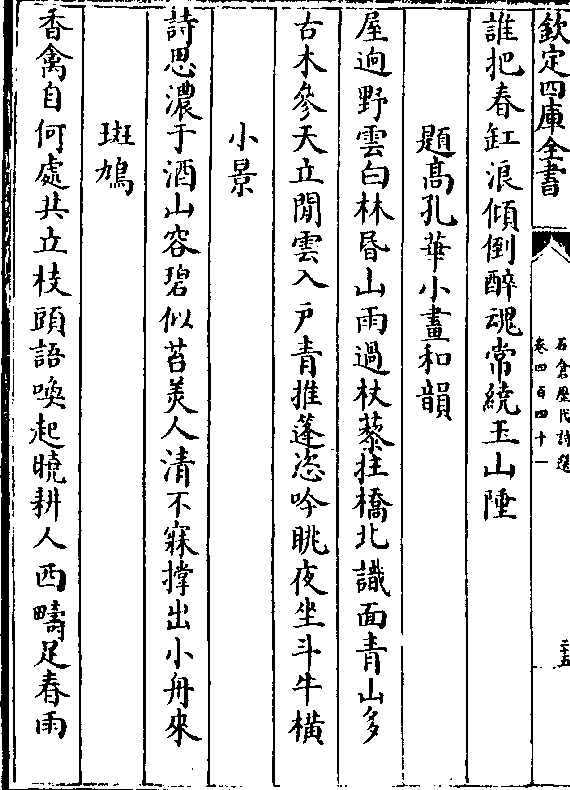 欽定四庫全書
石倉歷代詩選
卷四百四十一
二十五
誰把春缸浪傾倒醉魂常繞玉山陲
題髙孔華小畫和韻
屋逈野雲白林昏山雨過杖藜拄橋北識面青山多
古木參天立閒雲入户青推蓬恣吟眺夜坐斗牛橫
小景
詩思濃于酒山容碧似苔美人清不寐撐出小舟來
斑鳩
香禽自何處共立枝頭語喚起曉耕人西疇足春雨